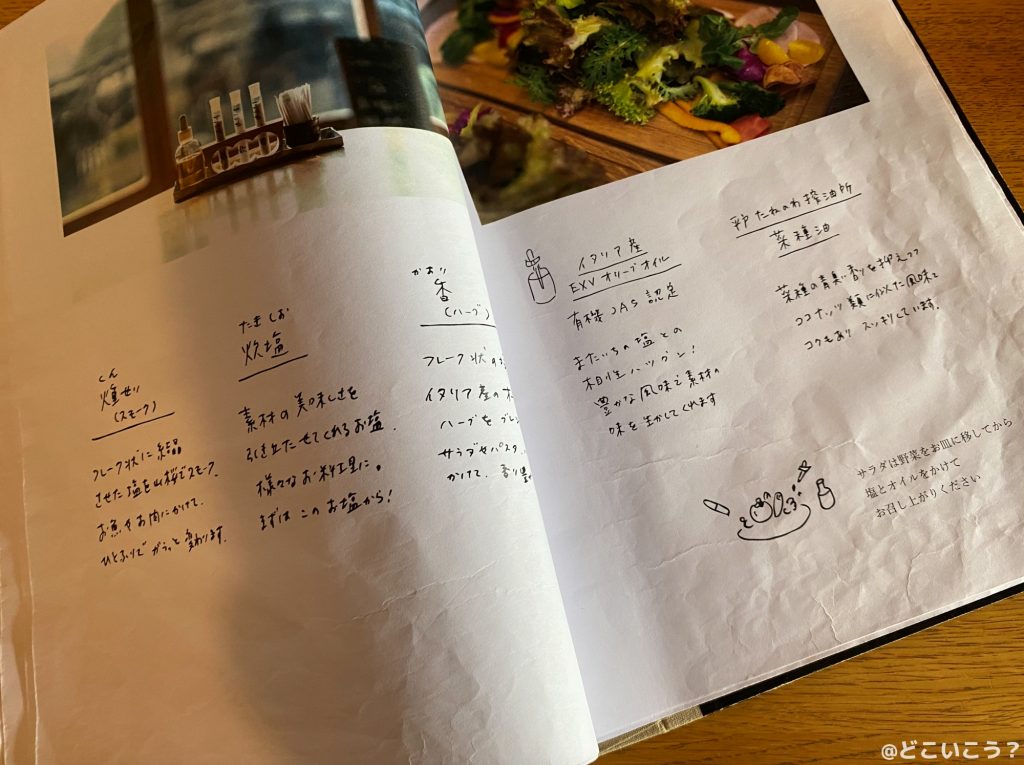 くん
燻せり
(スモーク)
フレーク状に結晶
させた塩を山桜でスモーク。
お魚やお肉にかけて。
ひとふりで がらっと 変わります。
たきしお
炊塩
素材の美味しさを
引き立たせてくれるお塩。
様々なお料理に。
まずは このお塩から!
かおり
香
(ハーブ)
フレーク状の
イタリア産の
ハーブを ブレン
サラダやパスタ、
かけて、香り
イタリア産
EXV オリーブオイル
有機JAS 認定
またいちの塩との
相性バツグン!
豊かな風味で素材の
味を生かしてくれます
平戸 たねのわ 搾油所
菜種油
菜種の青臭い香りを抑えつつ
ココナッツ類に似た風味で
コクもあり スッキリしています。
サラダは野菜をお皿に移してから
塩とオイルをかけて
お召し上がりください
@どこいこう?